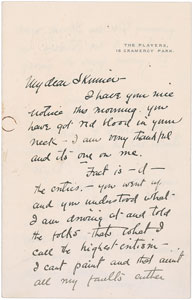 THE PLAYERS,
16 GRAMERCY PARK.
My dear Skinner
I have your nice
notice this morning. you
have got red blood in your
neck - I am very thankful
and it's one on me.
Fact is - d -
the critics. - you went up
and you understood what
I am driving at - and told
the folks - thats what I
call the highest criticism. -
I cant paint and that aint
all my faults either